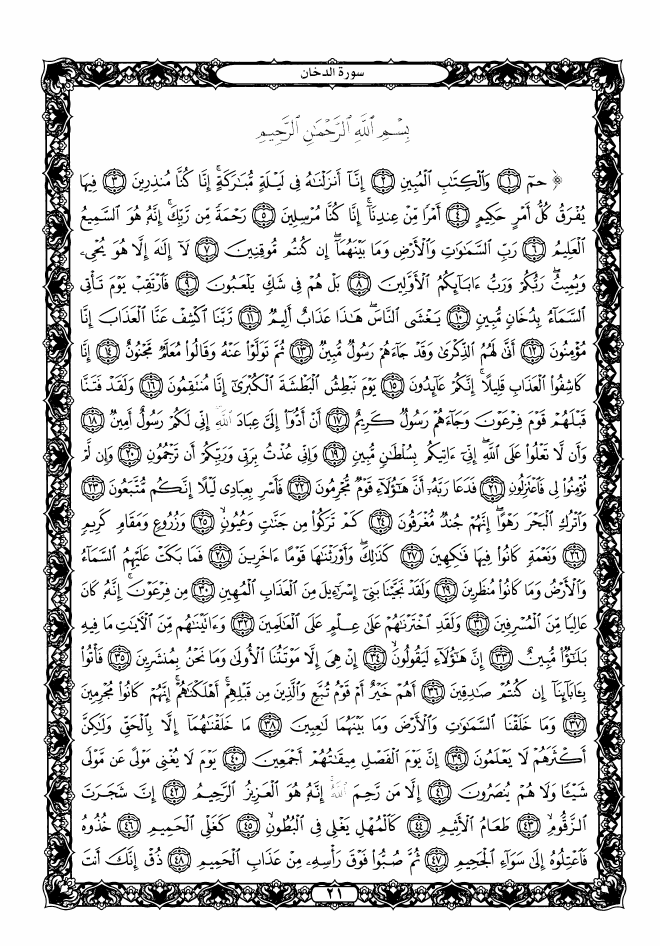 سورة الدخان
بِسْمِ ٱللَّهِ ٱلرَّحْمَٰنِ ٱلرَّحِيمِ
﴿ حمٓ ١ وَٱلْكِتَٰبِ ٱلْمُبِينِ ٢ إِنَّآ أَنزَلْنَٰهُ فِى لَيْلَةٍ مُّبَٰرَكَةٍ ۚ إِنَّا كُنَّا مُنذِرِينَ ٣ فِيهَا
يُفْرَقُ كُلُّ أَمْرٍ حَكِيمٍ ٤ أَمْرًا مِّنْ عِندِنَآ ۚ إِنَّا كُنَّا مُرْسِلِينَ ٥ رَحْمَةً مِّن رَّبِّكَ ۚ إِنَّهُۥ هُوَ ٱلسَّمِيعُ
ٱلْعَلِيمُ ٦ رَبِّ ٱلسَّمَٰوَٰتِ وَٱلْأَرْضِ وَمَا بَيْنَهُمَآ ۖ إِن كُنتُم مُّوقِنِينَ ٧ لَآ إِلَٰهَ إِلَّا هُوَ يُحْىِۦ
وَيُمِيتُ ۖ رَبُّكُمْ وَرَبُّ ءَابَآئِكُمُ ٱلْأَوَّلِينَ ٨ بَلْ هُمْ فِى شَكٍّ يَلْعَبُونَ ٩ فَٱرْتَقِبْ يَوْمَ تَأْتِى
ٱلسَّمَآءُ بِدُخَانٍ مُّبِينٍ ١٠ يَغْشَى ٱلنَّاسَ ۖ هَٰذَا عَذَابٌ أَلِيمٌ ١١ رَّبَّنَا ٱكْشِفْ عَنَّا ٱلْعَذَابَ إِنَّا
مُؤْمِنُونَ ١٢ أَنَّىٰ لَهُمُ ٱلذِّكْرَىٰ وَقَدْ جَآءَهُمْ رَسُولٌ مُّبِينٌ ١٣ ثُمَّ تَوَلَّوْا۟ عَنْهُ وَقَالُوا۟ مُعَلَّمٌ مَّجْنُونٌ ١٤ إِنَّا
كَاشِفُوا۟ ٱلْعَذَابِ قَلِيلًا ۚ إِنَّكُمْ عَآئِدُونَ ١٥ يَوْمَ نَبْطِشُ ٱلْبَطْشَةَ ٱلْكُبْرَىٰٓ إِنَّا مُنتَقِمُونَ ١٦ وَلَقَدْ فَتَنَّا
قَبْلَهُمْ قَوْمَ فِرْعَوْنَ وَجَآءَهُمْ رَسُولٌ كَرِيمٌ ١٧ أَنْ أَدُّوٓا۟ إِلَىَّ عِبَادَ ٱللَّهِ ۖ إِنِّى لَكُمْ رَسُولٌ أَمِينٌ ١٨
وَأَن لَّا تَعْلُوا۟ عَلَى ٱللَّهِ ۖ إِنِّىٓ ءَاتِيكُم بِسُلْطَٰنٍ مُّبِينٍ ١٩ وَإِنِّى عُذْتُ بِرَبِّى وَرَبِّكُمْ أَن تَرْجُمُونِ ٢٠ وَإِن لَّمْ
تُؤْمِنُوا۟ لِى فَٱعْتَزِلُونِ ٢١ فَدَعَا رَبَّهُۥٓ أَنَّ هَٰٓؤُلَآءِ قَوْمٌ مُّجْرِمُونَ ٢٢ فَأَسْرِ بِعِبَادِى لَيْلًا إِنَّكُم مُّتَّبَعُونَ ٢٣
وَٱتْرُكِ ٱلْبَحْرَ رَهْوًا ۖ إِنَّهُمْ جُندٌ مُّغْرَقُونَ ٢٤ كَمْ تَرَكُوا۟ مِن جَنَّٰتٍ وَعُيُونٍ ٢٥ وَزُرُوعٍ وَمَقَامٍ كَرِيمٍ
٢٦ وَنَعْمَةٍ كَانُوا۟ فِيهَا فَٰكِهِينَ ٢٧ كَذَٰلِكَ ۖ وَأَوْرَثْنَٰهَا قَوْمًا ءَاخَرِينَ ٢٨ فَمَا بَكَتْ عَلَيْهِمُ ٱلسَّمَآءُ
وَٱلْأَرْضُ وَمَا كَانُوا۟ مُنظَرِينَ ٢٩ وَلَقَدْ نَجَّيْنَا بَنِىٓ إِسْرَٰٓءِيلَ مِنَ ٱلْعَذَابِ ٱلْمُهِينِ ٣٠ مِن فِرْعَوْنَ ۚ إِنَّهُۥ كَانَ
عَالِيًا مِّنَ ٱلْمُسْرِفِينَ ٣١ وَلَقَدِ ٱخْتَرْنَٰهُمْ عَلَىٰ عِلْمٍ عَلَى ٱلْعَٰلَمِينَ ٣٢ وَءَاتَيْنَٰهُم مِّنَ ٱلْءَايَٰتِ مَا فِيهِ
بَلَٰٓؤٌا۟ مُّبِينٌ ٣٣ إِنَّ هَٰٓؤُلَآءِ لَيَقُولُونَ ٣٤ إِنْ هِىَ إِلَّا مَوْتَتُنَا ٱلْأُولَىٰ وَمَا نَحْنُ بِمُنشَرِينَ ٣٥ فَأْتُوا۟
بِـَٔابَآئِنَآ إِن كُنتُمْ صَٰدِقِينَ ٣٦ أَهُمْ خَيْرٌ أَمْ قَوْمُ تُبَّعٍ وَٱلَّذِينَ مِن قَبْلِهِمْ ۚ أَهْلَكْنَٰهُمْ ۖ إِنَّهُمْ كَانُوا۟ مُجْرِمِينَ
٣٧ وَمَا خَلَقْنَا ٱلسَّمَٰوَٰتِ وَٱلْأَرْضَ وَمَا بَيْنَهُمَا لَٰعِبِينَ ٣٨ مَا خَلَقْنَٰهُمَآ إِلَّا بِٱلْحَقِّ وَلَٰكِنَّ
أَكْثَرَهُمْ لَا يَعْلَمُونَ ٣٩ إِنَّ يَوْمَ ٱلْفَصْلِ مِيقَٰتُهُمْ أَجْمَعِينَ ٤٠ يَوْمَ لَا يُغْنِى مَوْلًى عَن مَّوْلًى
شَيْـًٔا وَلَا هُمْ يُنصَرُونَ ٤١ إِلَّا مَن رَّحِمَ ٱللَّهُ ۚ إِنَّهُۥ هُوَ ٱلْعَزِيزُ ٱلرَّحِيمُ ٤٢ إِنَّ شَجَرَتَ
ٱلزَّقُّومِ ٤٣ طَعَامُ ٱلْأَثِيمِ ٤٤ كَٱلْمُهْلِ يَغْلِى فِى ٱلْبُطُونِ ٤٥ كَغَلْىِ ٱلْحَمِيمِ ٤٦ خُذُوهُ
فَٱعْتِلُوهُ إِلَىٰ سَوَآءِ ٱلْجَحِيمِ ٤٧ ثُمَّ صُبُّوا۟ فَوْقَ رَأْسِهِۦ مِنْ عَذَابِ ٱلْحَمِيمِ ٤٨ ذُقْ إِنَّكَ أَنتَ
٢١